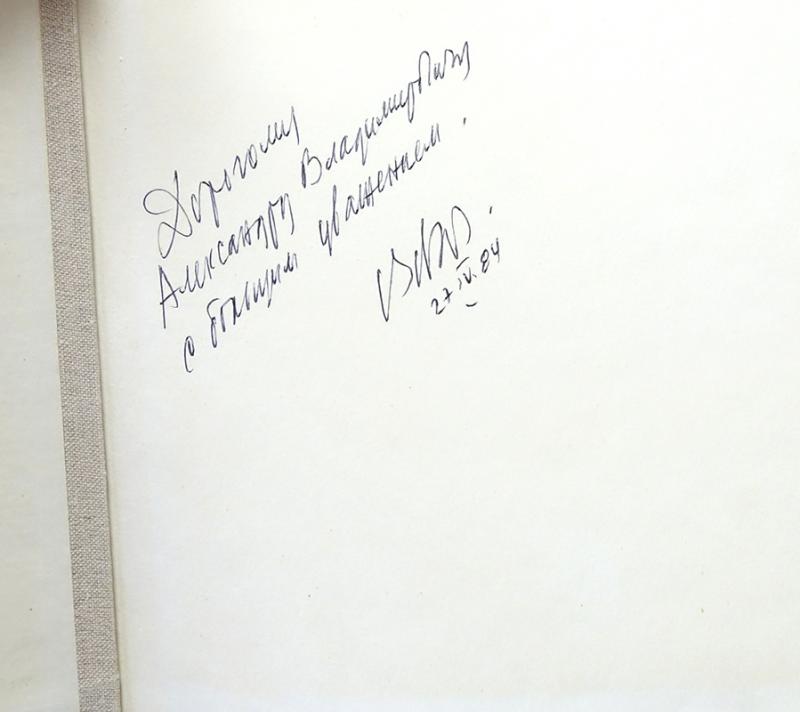 Дорогому
Александру Владимировичу
с большим уважением.
27.IV.84